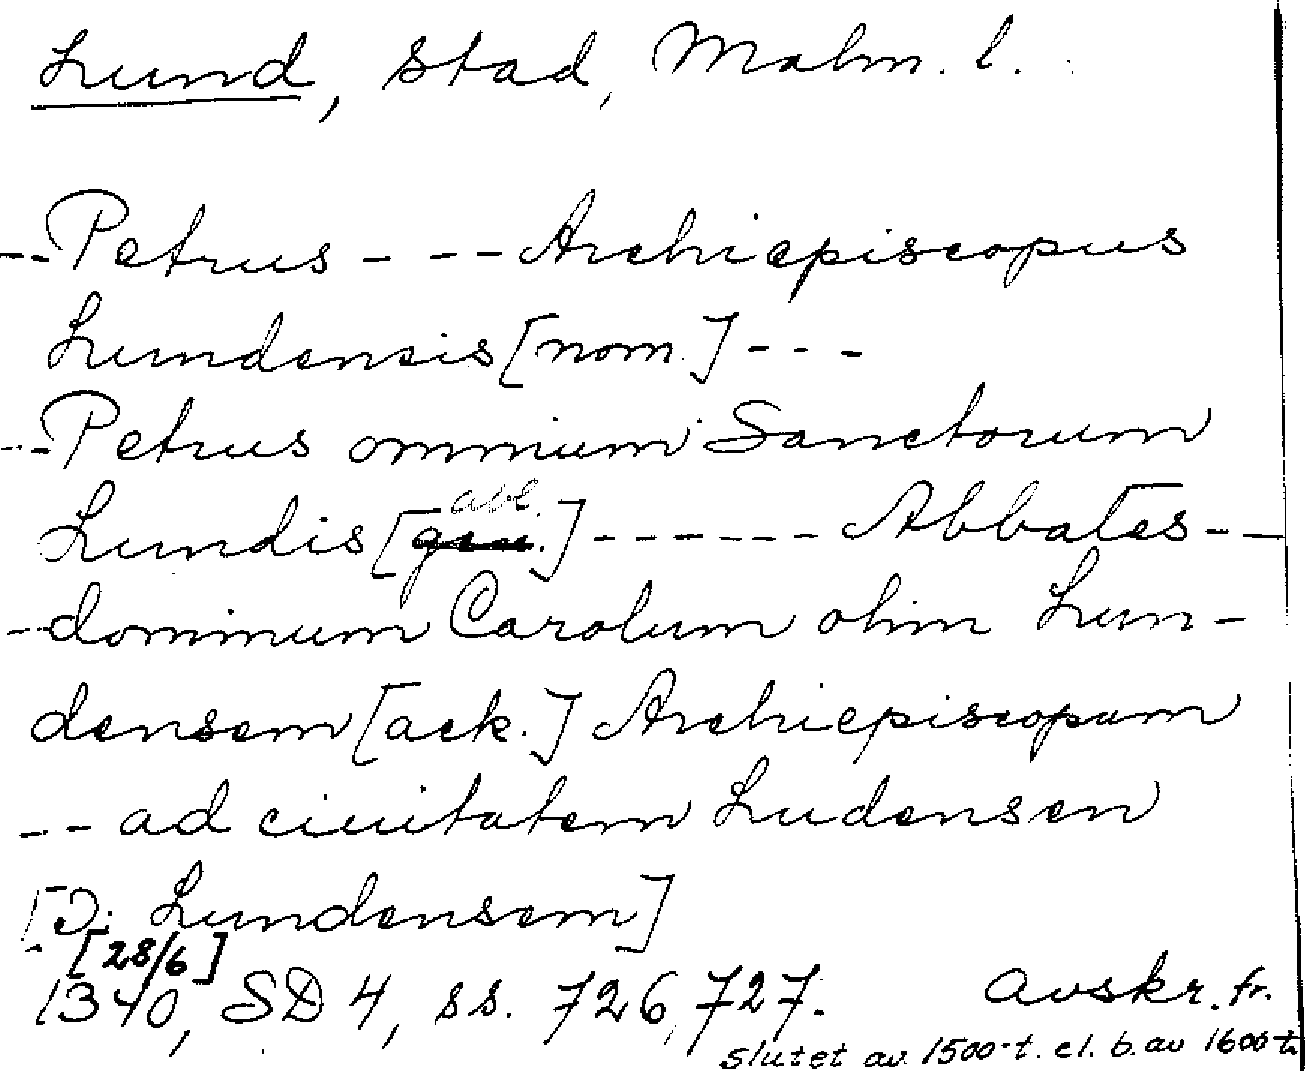 Lund, stad, Malm. l.
-- Petrus - - - - Archiepiscopus
Lundensis [nom.] - - -
-- Petrus omnium Sanctorum
abl.
Lundis [gen.] - - - - - - Abbates - -
-- dominum Carolum olim Lun-
densem [ack.] Archiepiscopum
-- ad ciuitatem Ludensen
[Ɔ: Lundensem]
[28/6]
1340, SD 4, ss. 726, 727. avskr. fr.
slutet av 1500-t. el. b. av 1600-t.